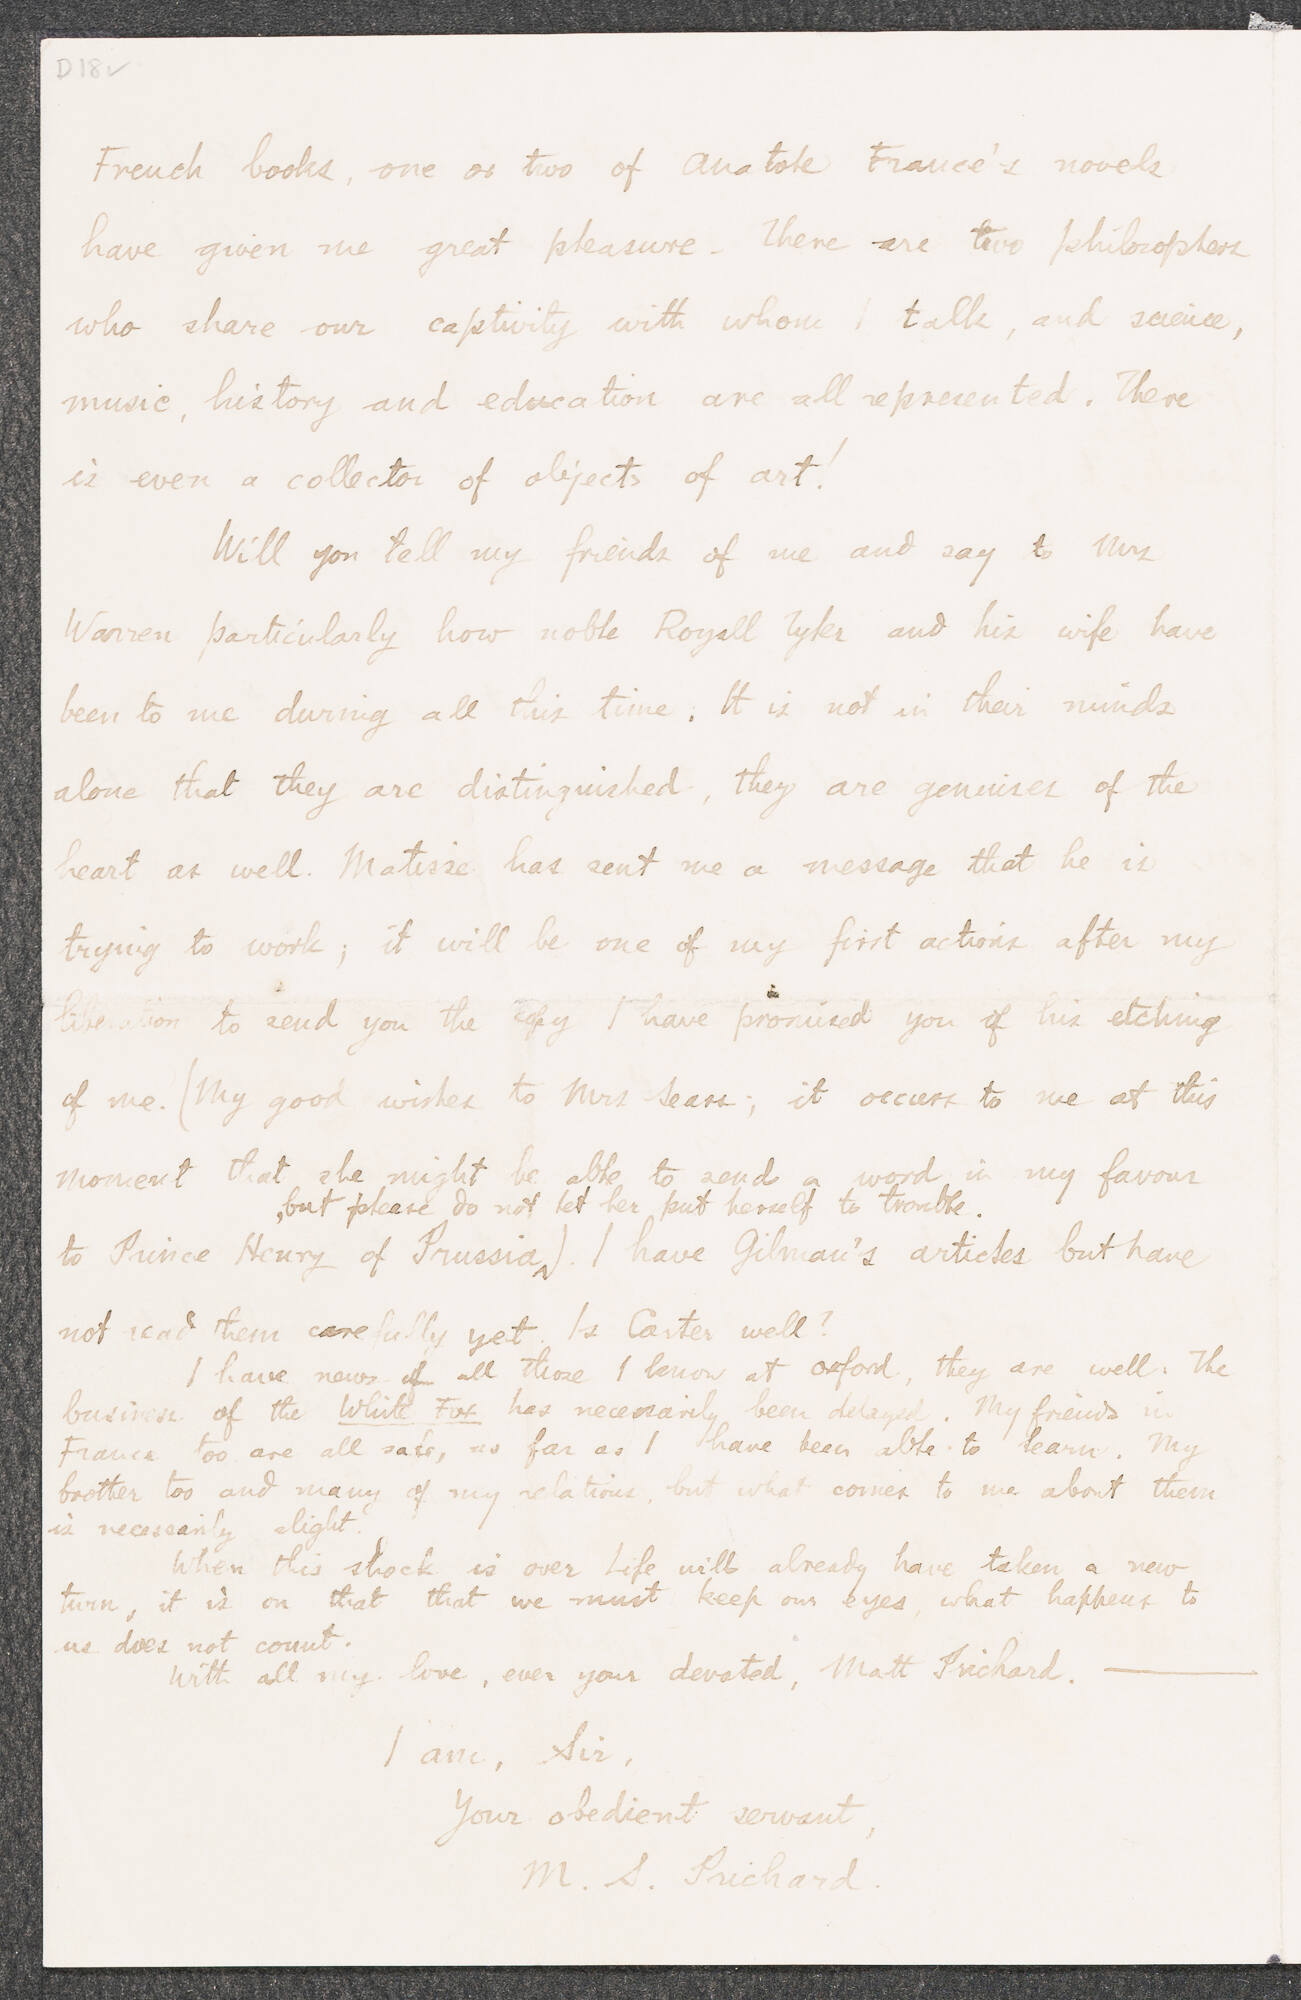 D18v
French books, one or two of Anatole France's novels
have given me great pleasure. There are two philosophers
who share our captivity with whom I talk, and science,
music, history and education are all represented. There
is even a collector of objects of art!
Will you tell my friends of me and say to Mrs
Warren particularly how noble Royall Tyler and his wife have
been to me during all this time. It is not in their minds
alone that they are distinguished, they are geniuses of the
heart as well. Matisse has sent me a message that he is
trying to work; it will be one of my first actions after my
liberation to send you the copy I have promised you of his etching
of me. (My good wishes to Mrs Sears; it occurs to me at this
moment that she might be able to send a word in my favour
, but please do not let her put herself to trouble.
to Prince Henry of Prussia). I have Gilman's articles but have
not read them carefully yet. Is Carter well?
I have news of all those I know at Oxford, they are well. The
business of the White Fox has necessarily been delayed. My friends in
France too are all safe, as far as I have been able to learn. My
brother too and many of my relations, but what comes to me about them
is necessarily slight.
When this shock is over Life will already have taken a new
turn, it is on that that we must keep our eyes, what happens to
us does not count.
With all my love, ever your devoted, Matt Prichard.
I am, Sir,
Your obedient servant,
M. S. Prichard.